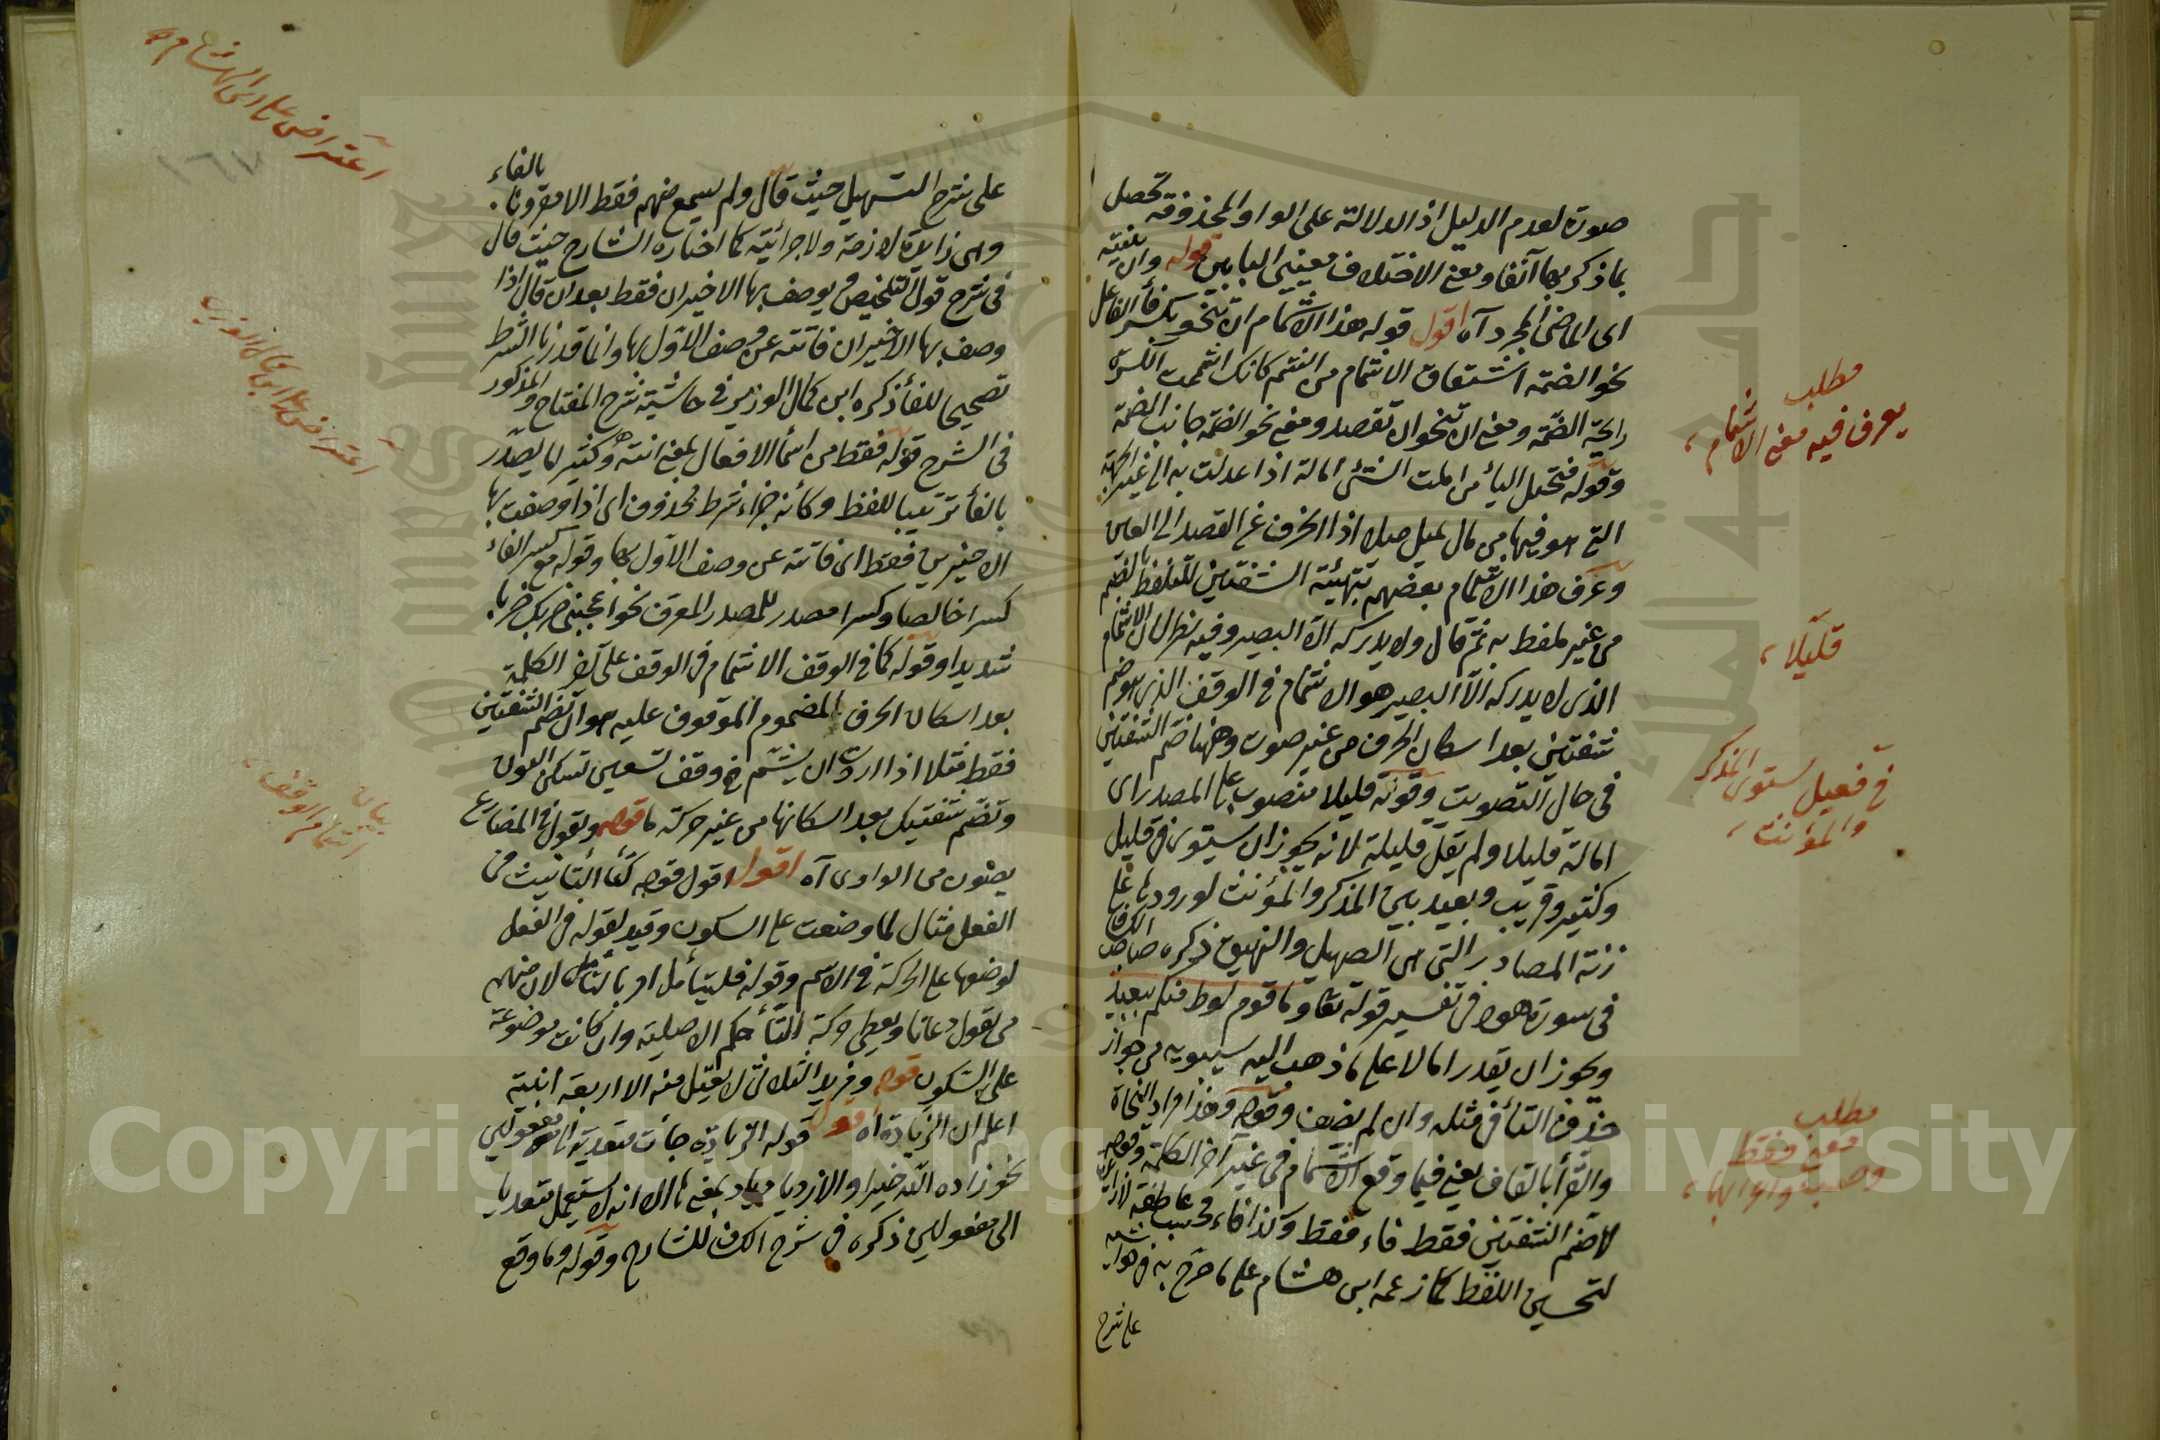 صورة لعدم الدليل اذ الدلالة على الواو المحذوفة تحصل
بما ذكر بها آنفا ويعني الاختلاف معنيي البابين قوله وان بنيته
اى الماضى المجرد آه اقول قوله هذا الاشمام ان تنحو بكسر فأ الفاعل
نحو الضمة اشتقاق الاشمام من الشم كانك اشممت الكسرة
رايحة الضمة ومعنى ان تنحو ان تقصد ومعنى نحو الضمة جانب الضمة
وقوله فتحيل اليأ من املت الشئ امالة اذا عدلت به الى غير الجهة
التى هو فيها من مال يميل ميلا اذا انحرف عن القصد الى
وعرف هذا الاشمام بعضهم بتهيئة الشفتين للتلفظ بالضم
من غير تلفظ به ثم قال ولا يدركه الا البصير وفيه نظر لان الاشمام
الذى لا يدركه الا البصير هو الاشمام فى الوقف الذى هو ضم
شفتين بعد اسكان الحرف من غير صوت وههنا ضم الشفتين
فى حال التصويت وقوله قليلا منصوب على المصدر اى
امالة قليلا ولم يقل قليلة لانه يجوز ان يستوى فى قليل
وكثير وقريب وبعيد بين المذكر والمؤنث لورودها على
زنة المصادر التى هى الصهيل والنهيق ذكره صاحب الكشاف
فى سورة هود فى تفسير قوله تعا وما قوم لوط منكم ببعيد
ويجوز ان يقدر امالا على ما ذهب اليه سيبويه من جواز
حذف التأ فى مثله وان لم يضف وقوله وهذا مراد النحاة
والقرأ بالقاف يعنى فيما وقع الاشمام فى غير آخر الكلمة وقوله
لا ضم الشفتين فقط فاء فقط وكذا فاء فحسب عاطفة لا زائدة
لتحسين اللفظ كما زعمه ابن هشام على ما صرح به فى حواشيه
على شرح
مطلب
يعرف فيه معنى الاشمام
قليلا
فى فعيل يستوى المذكر
والمؤنث
مطلب
معنى فقط
على شرح التسهيل حيث قال ولم يسمع منهم فقط الا مقرونا بالفاء
وهى زايدة لازمة ولا جزائية كما اختاره الشارح حيث قال
فى شرح قول التلخيص ويوصف بها الاخيران فقط بعد ان قال اذا
وصف بها الاخيران فانته عن وصف الاول بها وانما قدرنا الشرط
تصحيحا للفأ ذكره ابن كمال الوزير فى حاشية شرح المفتاح والمذكور
فى الشرح قوله فقط من اسمأ الافعال بمعنى انته وكثير لما يصدر
بالفأ تزيينا للفظ وكأنه جزاء شرط محذوف اى اذا وصفت بها
الاخيرين فقط اى فانته عن وصف الاول بها وقوله مع كسر الفاء
كسرا خالصا وكسرا مصدر للمصدر المعرف نحو اعجبنى ضربك ضربا
شديدا وقوله كما فى الوقف الاشمام فى الوقف على آخر الكلمة
بعد اسكان الحرف المضموم الموقوف عليه هو ان تضم الشفتين
فقط مثلا اذا اردت ان يشم فى وقف نستعين تسكن النون
وتضم شفتيك بعد اسكانها من غير حركة ما قوله وتقول فى المضارع
يصون من الواوى آه اقول اقول قوله كتأ التأنيث فى
الفعل مثال لما وضعت على السكون وقيد بقوله فى الفعل
لوضعها على الحركة فى الاسم وقوله فليتأمل امر بالتأمل لان منهم
من يقول دعاتا ويعطى حركة التأ حكم الاصلية وان كانت موضوعة
على السكون قوله ومزيد الثلاثى لا يعتل منه الا اربعة ابنية
اعلم ان الزيادة اه اقول قوله الزيادة جائت متعدية الى مفعولين
نحو زاده الله خيرا والازدياد بمعناها الا انه لا يستعمل متعديا
الى مفعولين ذكره فى شرح الكشاف للشارح وقوله وما وقع
اعتراض على ابن الهشام
اعتراض على ابن كمال الوزير
بيان
اشمام الوقف
Copyright © King Saud University